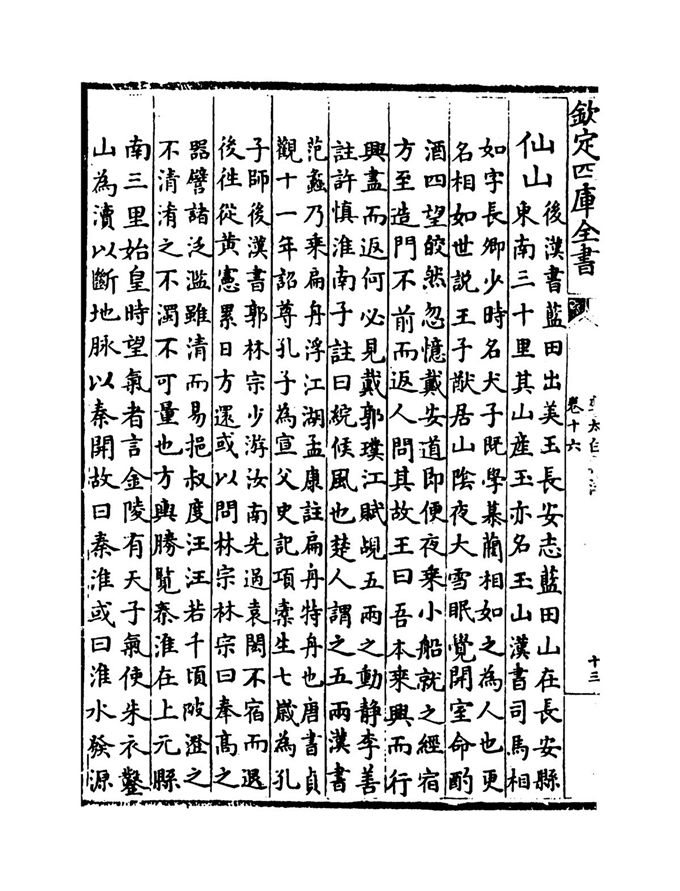 欽定四庫全書
太白
卷十六
十三
仙山
後漢書藍田出美玉長安志藍田山在長安縣
東南三十里其山産玉亦名玉山漢書司馬相
如字長卿少時名犬子既學慕藺相如之為人也更
名相如世説王子猷居山陰夜大雪眠覺開室命酌
酒四望皎然忽憶戴安道即便夜乗小船就之經宿
方至造門不前而返人問其故王曰吾本乗興而行
興盡而返何必見戴郭璞江賦覘五兩之動靜李善
註許慎淮南子註曰綄候風也楚人謂之五兩漢書
范蠡乃乗扁舟浮江湖孟康註扁舟特舟也唐書貞
觀十一年詔尊孔子為宣父史記項槖生七嵗為孔
子師後漢書郭林宗少游汝南先過袁閎不宿而退
後徃從黄憲累日方還或以問林宗林宗曰奉髙之
器譬諸泛濫雖清而易挹叔度汪汪若千頃陂澄之
不清淆之不濁不可量也方輿勝覽秦淮在上元縣
南三里始皇時望氣者言金陵有天子氣使朱衣鑿
山為瀆以斷地脉以秦開故曰秦淮或曰淮水發源